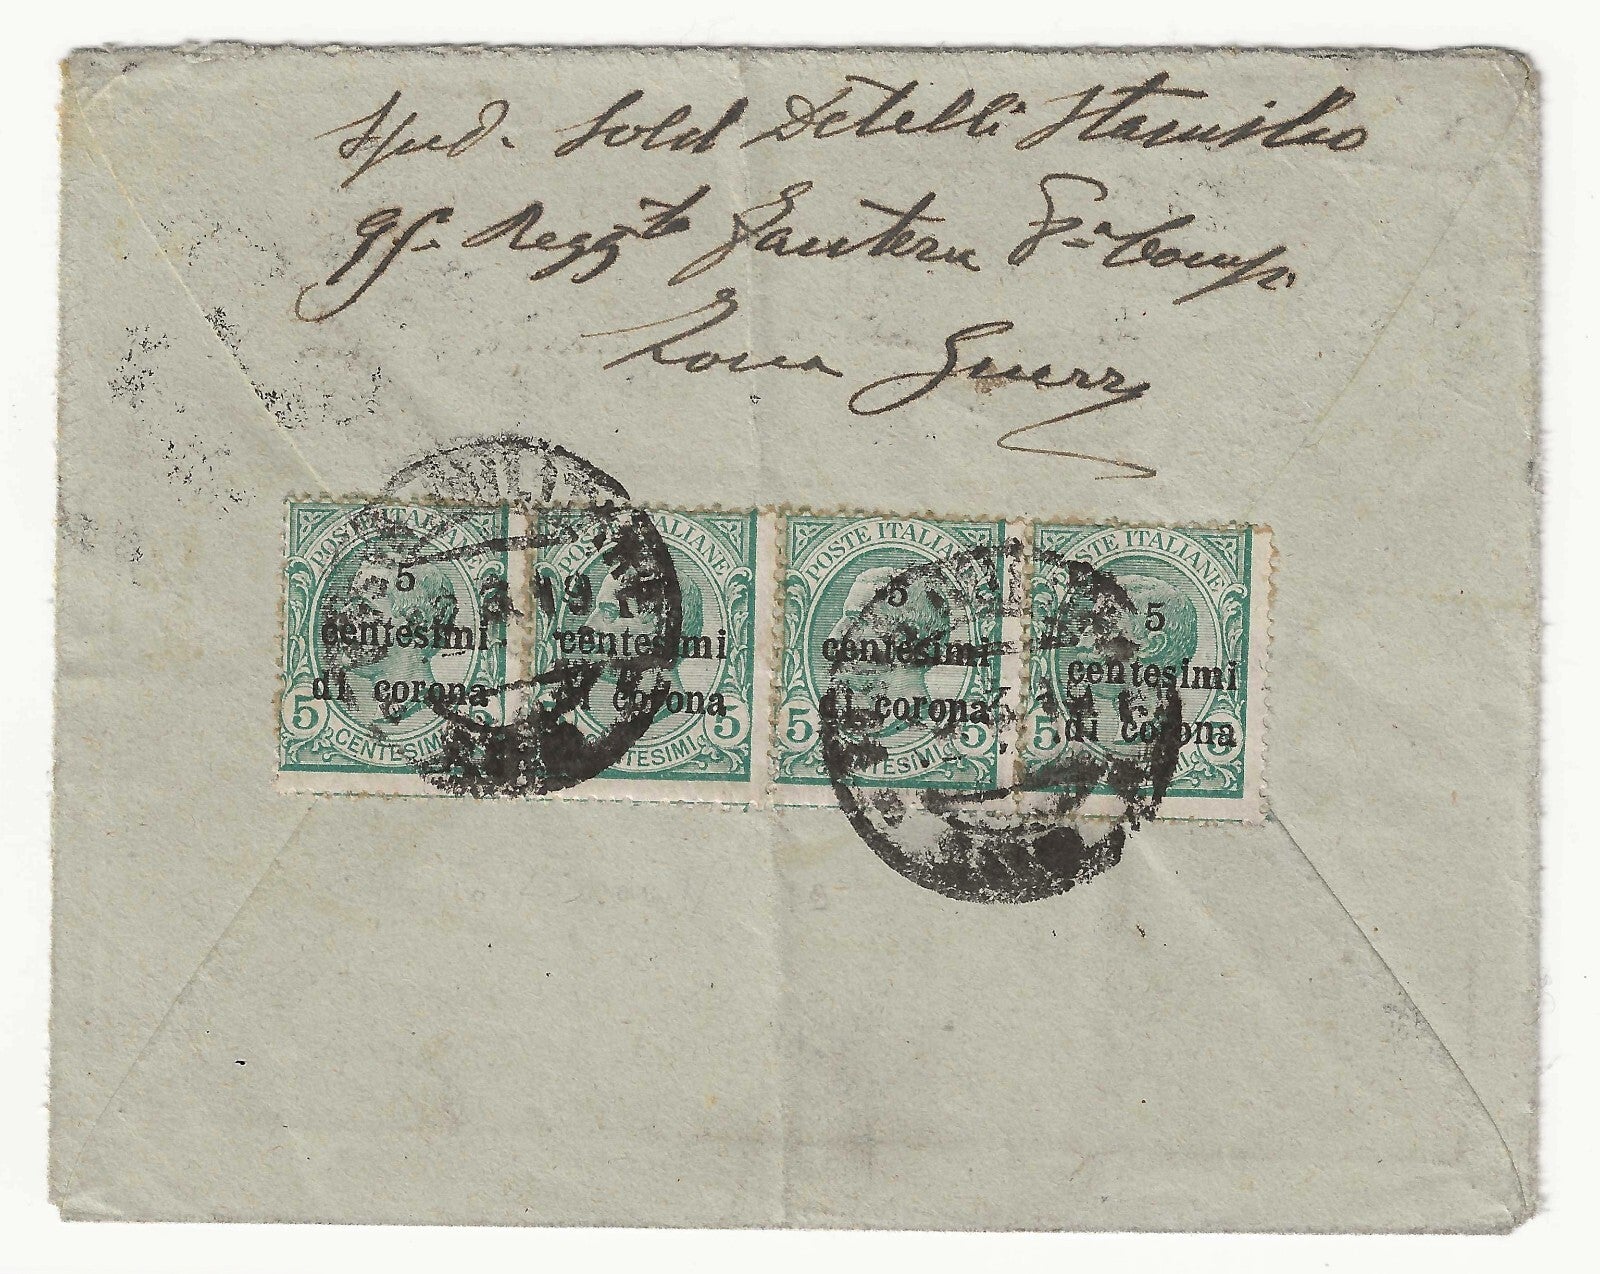 Sped. Sold Detelli Stanislao
95- Regg.to Fanteria 8-a Comp.
Zona Guerr
POSTE ITALIANE
5
centesimi
di corona
5 CENTESIMI 5
POSTE ITALIANE
centesimi
di corona
CENTESIMI 5
POSTE ITALIANE
5
centesimi
di corona
5 CENTESIMI 5
POSTE ITALIANE
5
centesimi
di corona
5
19